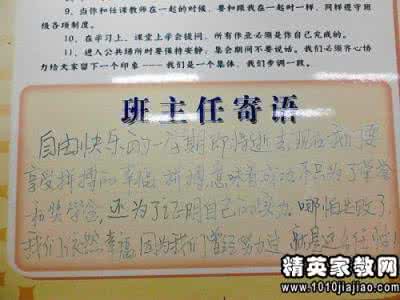 9、当你和任课教师在一起的时候，要和跟我在一起时一样，同样遵守班
级各项制度。
10、在学习上，课堂上学会提问，所有作业必须是你自己完成的。
11、进入公共场所时要保持安静；集会期间不要说话。我们必须齐心协
力给大家留下一个印象——我们是一个集体，我们步调一致。
班主任寄语
自由快乐的一星期即将逝去，现在我们要
享受拼搏的幸福，拼搏意味着成功，不只为了荣誉
和奖学金，还为了证明自己的能力。哪怕失败了
我们依然幸福，因为我们曾经努力过，
精英家教网
www.1010jiajiao.com